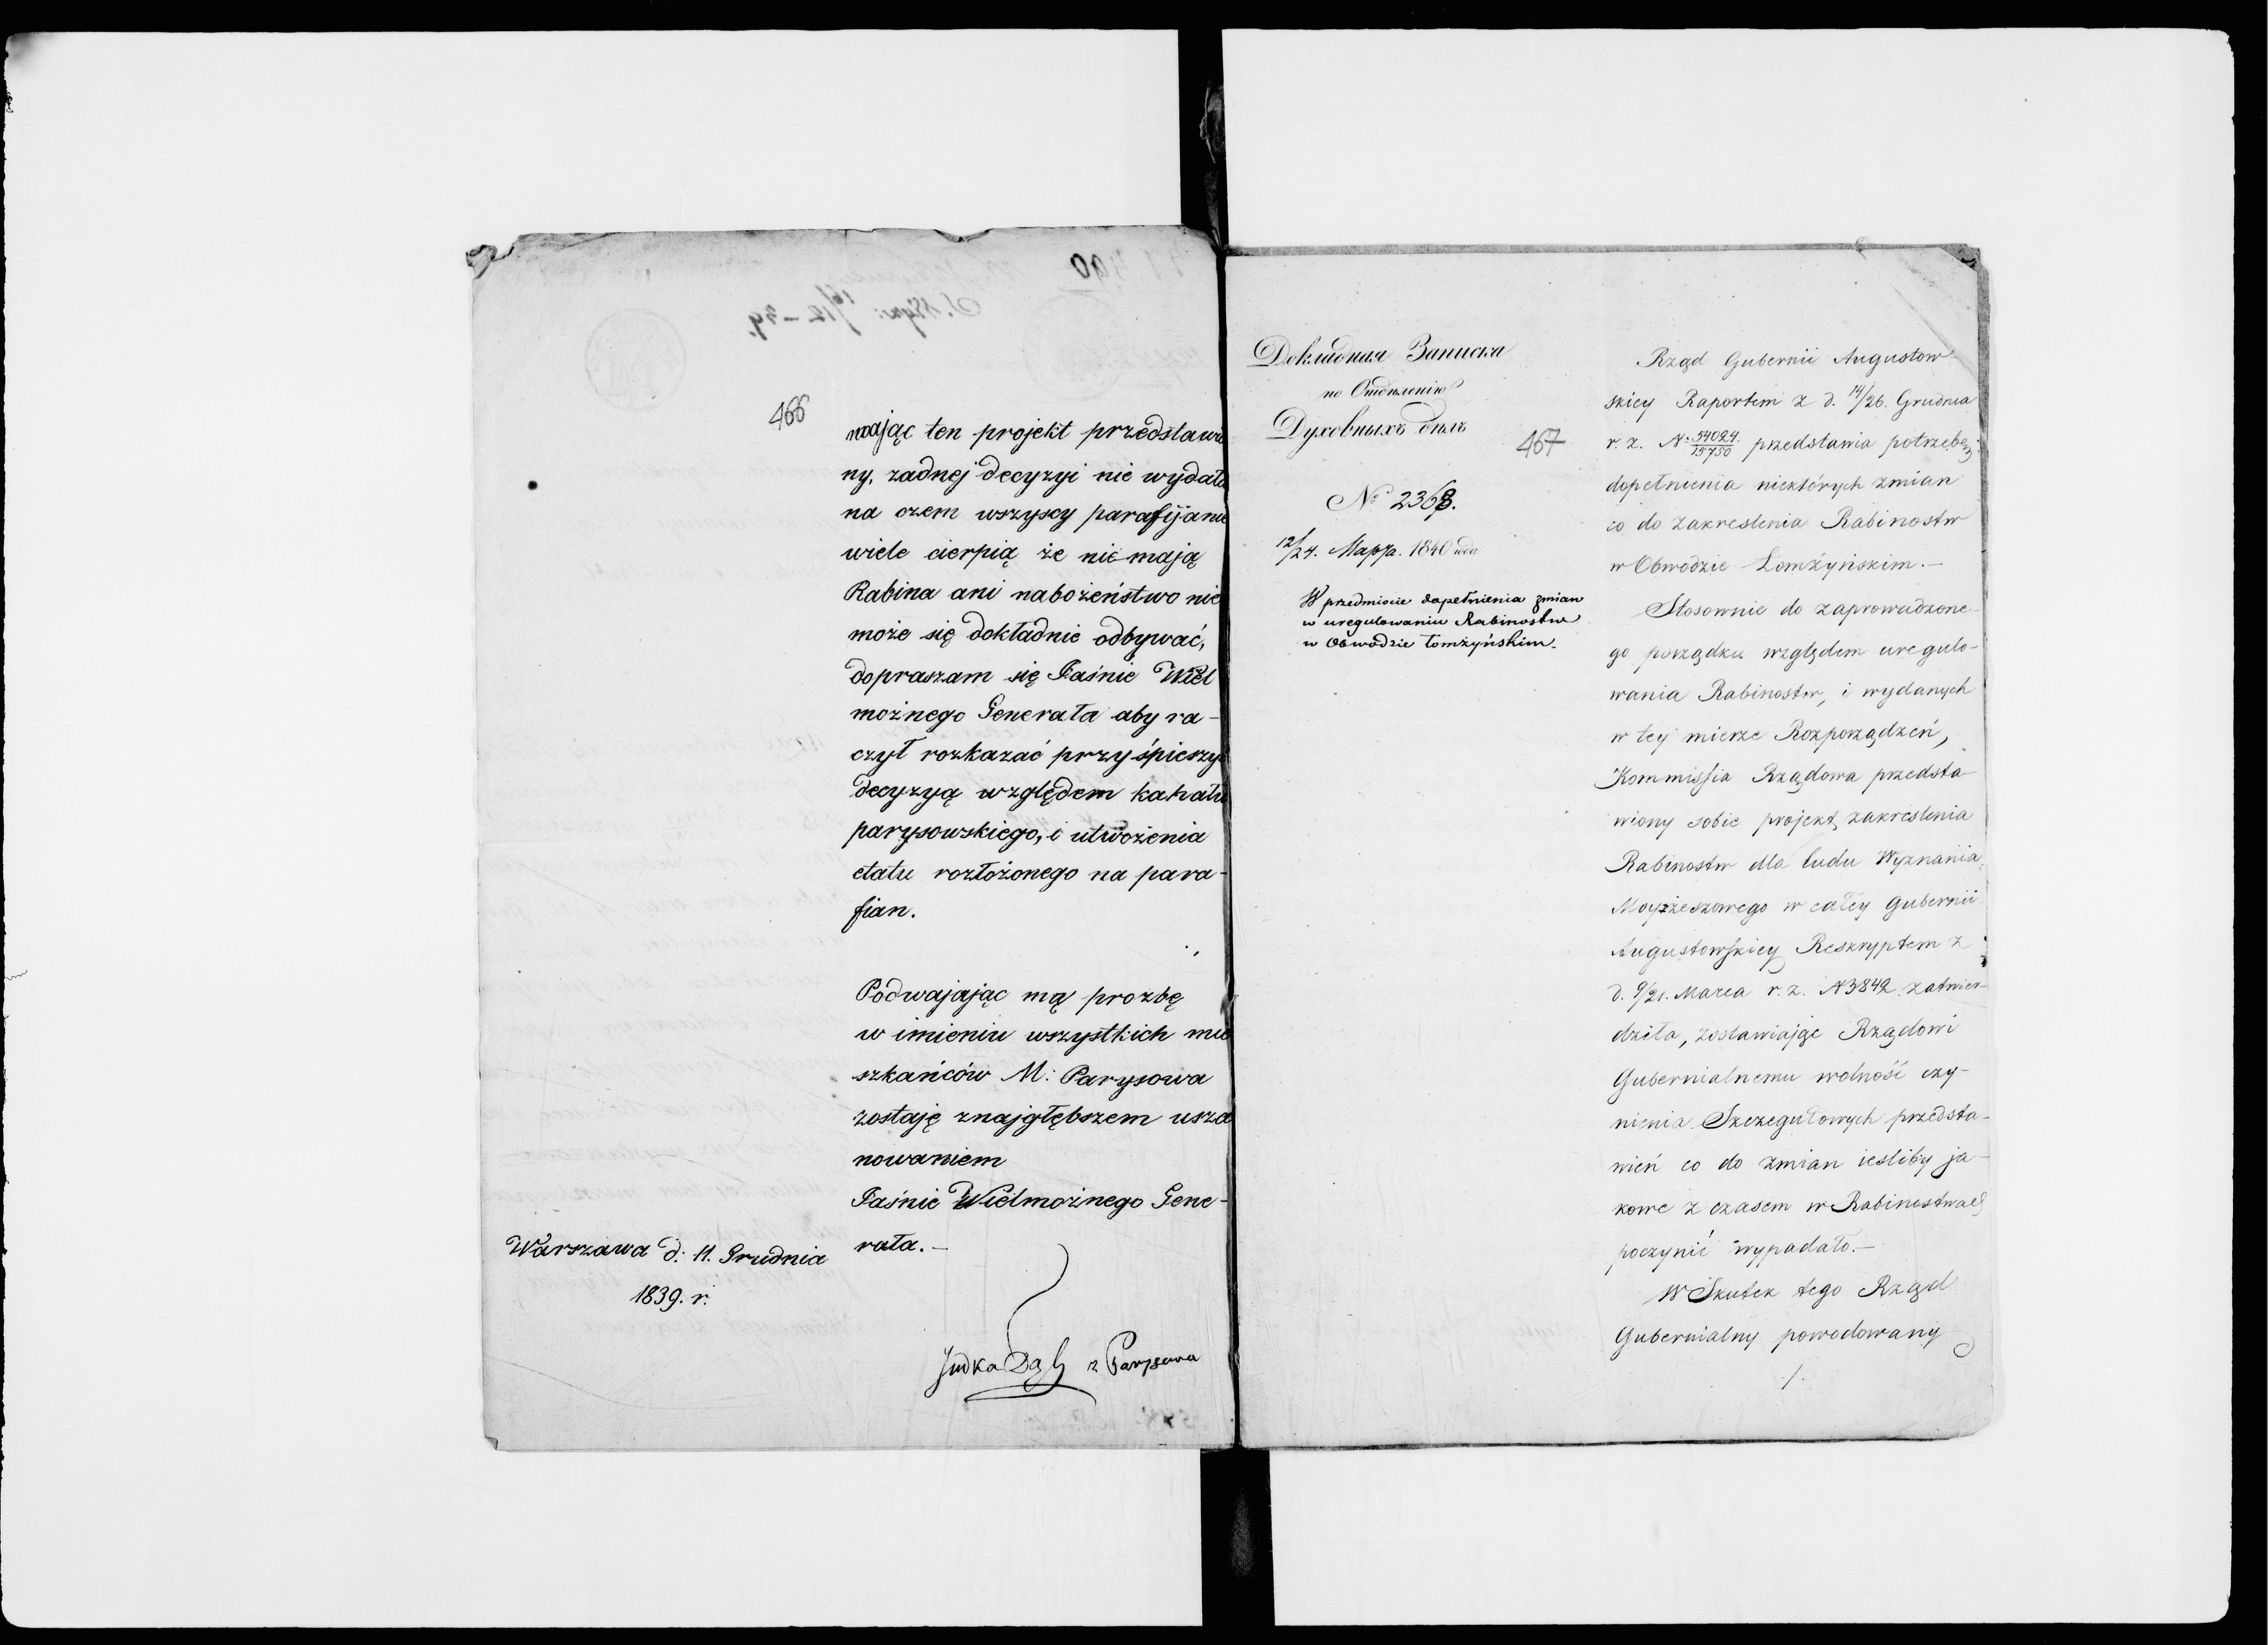 466
mając ten projekt przedstawio
ny, zadnej decyzyi nie wydała
na czem wszyscy parafijanie
wiele cierpią że nie mają
Rabina ani nabożeństwo nie
może się dokładnie odbywać,
dopraszam się Jaśnie Wiel
możnego Generała aby ra-
czył rozkazać przyśpieszyć
decyzyą względem kahału
parysowskiego, i utwożenia
etatu rozłożonego na para-
fian.
Podwajając mą prozbę
w imieniu wszystkich mie
szkańców M: Parysowa
zostaję znajgłębszem usza
nowaniem
Jaśnie Wielmożnego Gene-
rała.—
Warszawa d: 11. Grudnia
1839. r.
Judka z Parysowa
Докладная Записка
по Отделенію
Духовныхъ дѣлъ
№ 2368.
12/24. Марта. 1840 года
W przedmiocie dopełnienia zmian
w uregulowaniu Rabinostw
w Obwodzie Łomżyńskim.
467
Rząd Gubernii Augustow-
skiey Raportem z d. 14/26. Grudnia
r. z. N. 54024/15750 przedstawia potrzebę
dopełnienia niektórych zmian
co do zakreslenia Rabinostw
w Obwodzie Łomżyńskim.—
Stosownie do zaprowadzone-
go porządku względem uregulo-
wania Rabinostw, i wydanych
w tey mierze Rozporządzeń,
Kommissia Rządowa przedsta-
wiony sobie projekt zakreslenia
Rabinostw dla ludu Wyznania
Moyżeszowego w całey Gubernii
Augustowskiey Reskryptem z
d. 9/21. Marca r. z. N 3842. zatwier-
dziła, zostawiając Rządowi
Gubernialnemu wolność czy-
nienia Szczegułowych przedsta-
wień co do zmian iesliby ja-
kowe z czasem w Rabinostwach
poczynić wypadało.—
W Skutek tego Rząd
Gubernialny powodowany
./.